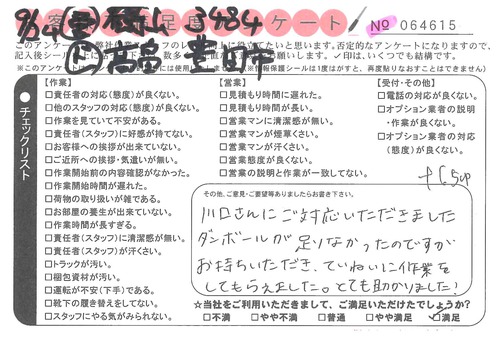 9/24
3484
ケート
№ 064615
●チェックリスト
【作業】
□責任者の対応(態度)が良くない。
□他のスタッフの対応(態度)が良くない。
□作業を見ていて不安がある。
□責任者(スタッフ)に好感が持てない。
□お客様への挨拶が出来ていない。
□ご近所への挨拶・気遣いが無い。
□作業開始前の内容確認がなかった。
□作業開始時間が遅れた。
□荷物の取り扱いが雑である。
□お部屋の養生が出来ていない。
□作業時間が長すぎる。
□責任者(スタッフ)に清潔感が無い。
□責任者(スタッフ)が汗くさい。
□トラックが汚い。
□梱包資材が汚い。
□運転が不安(下手)である。
□靴下の履き替えをしてない。
□スタッフにやる気がみられない。
【営業】
□見積もり時間に遅れた。
□見積もり時間が長い。
□営業マンに清潔感が無い。
□営業マンが煙草くさい。
□営業マンが汗くさい。
□営業態度が良くない。
□営業の説明と作業が一致してない。
【受付・その他】
□電話の対応が良くない。
□オプション業者の説明
・作業が良くない。
□オプション業者の対応
(態度)が良くない。
その他、ご意見・ご要望等ありましたらお書き下さい。
川口さんにご対応いただきました
ダンボールが足りなかったのですが
お持ちいただき、ていねいに作業を
してもらえました。とても助かりました!
☆当社をご利用いただきまして、ご満足いただけたでしょうか?
□不満 □やや不満 □普通 □やや満足 ☑満足